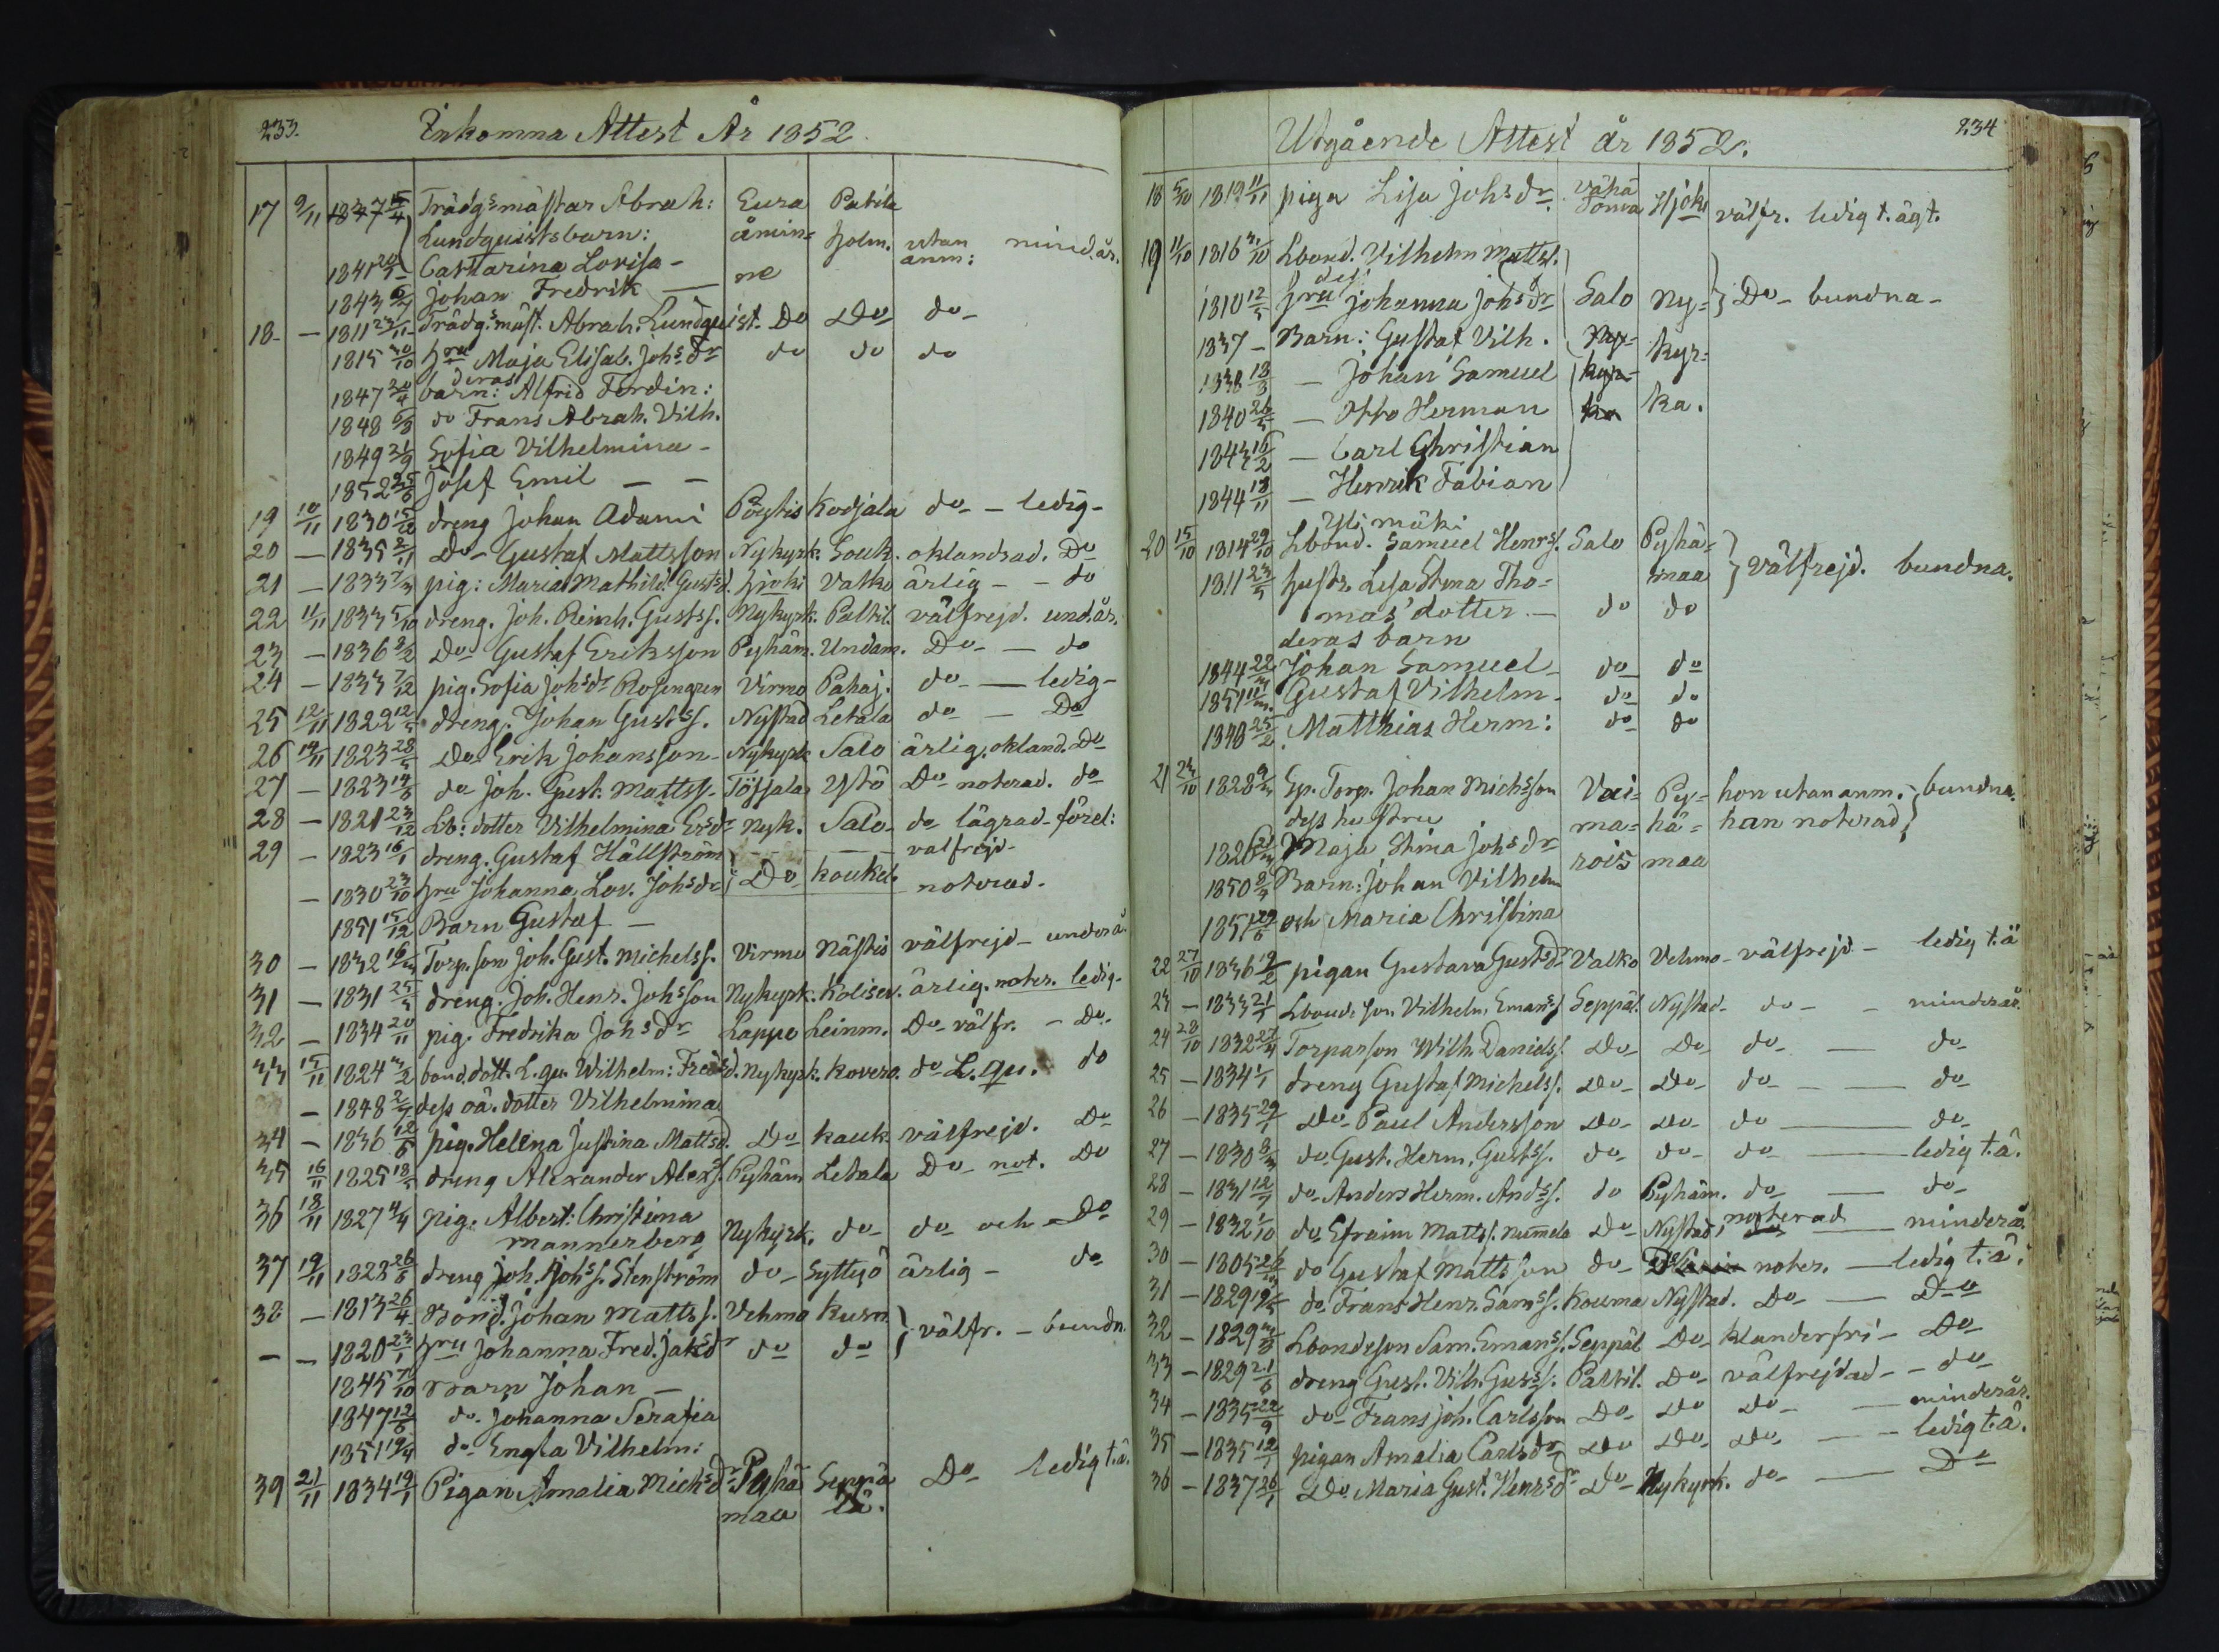 233.
Inkomna Attest År 1852
17 9/11 1837 15/4 Trädgsmästar Abrah: Eura Patila
Lundquistsbarn: åmin= holm. utan anm: mind.år.
1841 24/5 Catharina Lovisa - ne
1843 6/7 Johan Fredrik —
18 - 1811 23/11 Trädg.mäst. Abrah. Lundquist. Do Do do
1815 30/10 hru Maja Elisab. Johsdr do do do
deras
1847 20/4 barn: Alfrid Ferdin:
1848 6/8 do Frans Abrah. Vilh.
1849 21/9 Sofia Vilhelmina -
1852 25/6 Josef Emil — —
19 10/11 1830 15/12 dreng Johan Adami Pöytis Kodjala do - ledig -
20 — 1835 2/11 Do Gustaf Mattsson Nykyrk. Souk. oklandrad. Do
21 — 1833 7/3 pig: Maria Mathild. Gustd. hjoki Valko ärlig - - do
22 11/11 1833 5/10 dreng. Joh. Reinh. Gustss. Nykyrk. Paltil. välfrejd. und.år.
23 — 1836 8/2 Do Gustaf Eriksson Pyhäm. Undam. Do — do
24 — 1833 7/12 pig. Sofia Johsdr Rosengren Virmo Pahaj. do — ledig -
25 12/11 1822 12/5 dreng. Johan Gustss. Nystad Letala do — Do
26 14/11 1823 28/5 Do Erik Johansson - Nykyrk Salo ärlig. okland. Do
27 — 1823 14/8 do Joh. Gust. Mattss. Töfsala Ystö Do noterad. do
28 — 1821 23/12 Lb: dotter Vilhelmina Ersdr Nyk. Salo - do lägrad - förel:
29 — 1823 16/1 dreng. Gustaf Hällström valfrejd -
— 1830 23/10 hru Johanna Lov. Johsdr } Do koukel. noterad.
1851 15/12 Barn Gustaf —
30 — 1832 16/3 Torp.son Joh. Gust. Michelss. Virmo Nästis välfrejd - under å.
31 — 1831 25/5 dreng. Joh. Henr. Johsson Nykyrk. Kolisev. ärlig. noter. ledig -
32 — 1834 20/11 pig. Fredrika Johsdr Lappo Leinm. Do välfr. - Do
33 15/11 1824 3/2 bond.dott. L. qu. Wilhelm: Fredsd. Nykyrk. Kovero. do L. qu. do
— 1848 2/7 dess oä. dotter Vilhelmina
34 — 1836 12/6 pig. Helena Justina Mattsd. Do kauk välfrejd. Do
35 16/11 1825 18/5 dreng Alexander Alexs. Pyhäm Letala Do not. Do
36 18/11 1827 4/4 pig. Albert: Christina
Mannerberg Nykyrk. do do och Do
37 19/11 1828 26/6 dreng Joh. Johss. Stenström do Syttyö ärlig - do
38 — 1813 26/4 Bond. Johan Mattss. Vehmo Kusn.
— — 1820 23/1 hru Johanna Fred. Jaksdr do do } välfr. - bundn.
1845 7/10 Barn Johan —
1847 12/6 do. Johanna Serafia
1851 19/4 do Engla Vilhelm:
39 21/11 1834 19/1 Pigan Amalia Michsdr Pyhä Seppä Do ledig t.ä.
maa lä.
234
Utgående Attest år 1852.
18 5/10 1819 11/11 piga Lisa Johsdr. Vähä Hjoki välfr. ledig t. ägt.
19 11/10 1816 31/10 Lbond. Vilhelm Mattss.
dess
1810 12/5 hru Johanna Johsdr Salo Ny= } Do - bundna -
1837 — Barn: Gustaf Vilh. Ny= kyr=
1838 18/3 — Johan Samuel kyr=
1840 26/5 — Otto Herman ka ka.
1843 16/2 — Carl Christian
1844 18/11 — Henrik Fabian
Yli mäki
20 15/10 1814 29/10 Lbond. Samuel Henrs. Salo Pyhä=
1811 23/5 hustr. Lisa Stina Tho= maa } välfrejd. bundna.
mas'dotter — do do
deras barn
1844 22/3 Johan Samuel - do do
1851 11/3 Gustaf Vilhelm - do do
1848 25/2 Matthias Herm: do do
21 23/10 1828 9/3 Sp. Torp. Johan Michsson Vai= Py= hon utan anm. } bundna.
dess hustru ma= hä= han noterad
1826 21/3 Maja Stina Johsdr rois maa
1850 8/4 Barn: Johan Vilhelm
1851 29/6 och Maria Christina
22 27/10 1836 19/2 pigan Gustava Gustdr Valko Vehmo - välfrejd - ledig t.ä
23 — 1833 21/1 Lbonde son. Vilhelm Emans. Seppäl. Nystad - do - - minderår.
24 28/10 1832 27/4 Torparson Wilh. Daniels. Do Do do — do
25 — 1834 1/1 dreng Gustaf Michelss. Do Do do — do
26 — 1835 29/1 Do Paul Andersson Do Do do — do
27 — 1830 8/3 do Gust. Herm. Gustss. do do do — ledig t.ä.
28 — 1831 12/11 do Anders Herm. Andss. do Pyhäm. do — do
29 — 1832 1/10 do Efraim Mattss. Numela Do Nystad, noterad — minderå.
30 — 1805 26/12 do Gustaf Mattsson do noter. — ledig t.ä.
31 — 1829 19/5 do Frans Henr. Samss. Kouma Nystad. Do — Do
32 — 1829 3/8 Lbondeson Sam. Emanss. Seppäl Do klanderfri - Do
33 — 1829 21/6 dreng Gust. Vilh. Gusss. Paltil. Do välfrejdad - do
34 — 1835 22/9 do Frans Joh. Carlsson Do Do Do — minderår.
35 — 1835 12/1 pigan Amalia Carlsdr Do Do Do — ledig t.ä.
36 — 1837 26/1 Do Maria Gust. Henrsdr Do Nykyrk. do — Do